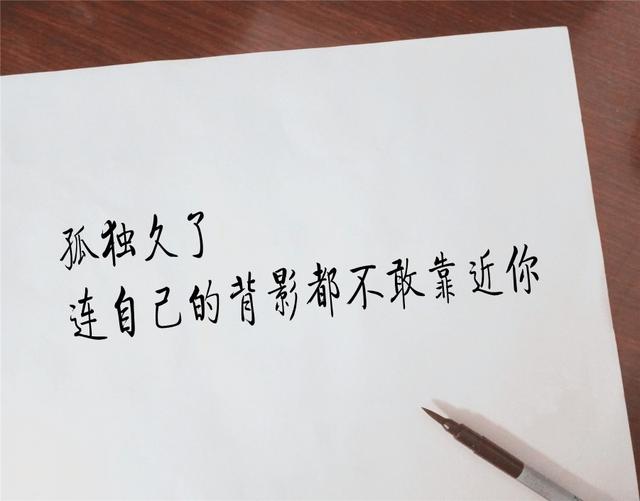 孤独久了
连自己的背影都不敢靠近你